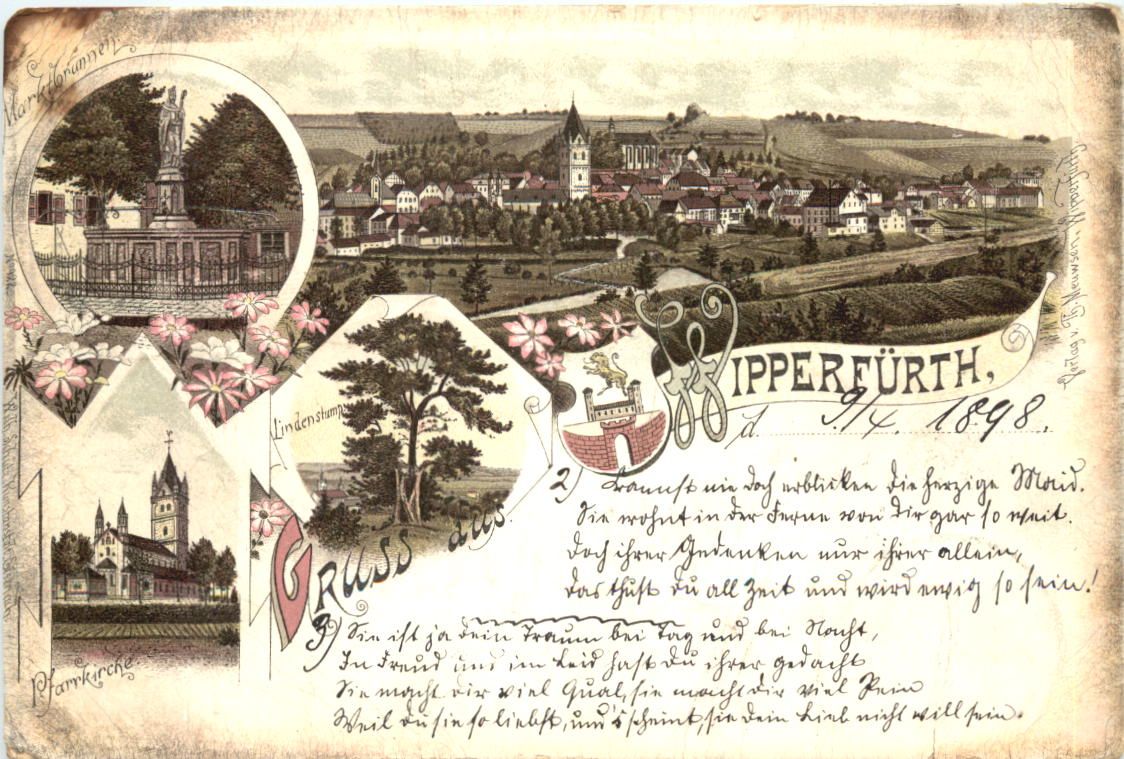 Marktbrunnen.
Lindenstumpf
Pfarrkirche
Gruss aus
WIPPERFÜRTH,
d. 9/4. 1898.
Verlag v. Nieuwsen,
2) Kannst nie doch erblicken die herzige Maid.
Sie wohnt in der Ferne von dir gar so weit.
Doch ihrer Gedenken nur ihrer allein,
das thust du all Zeit und wird ewig so sein!
3) Sie ist ja dein Traum bei Tag und bei Nacht,
In Freud und im Leid hast du ihrer gedacht
Sie macht dir viel Qual, sie macht dir viel Pein
Weil du sie so liebst, und's scheint, sie dein Lieb nicht will sein.